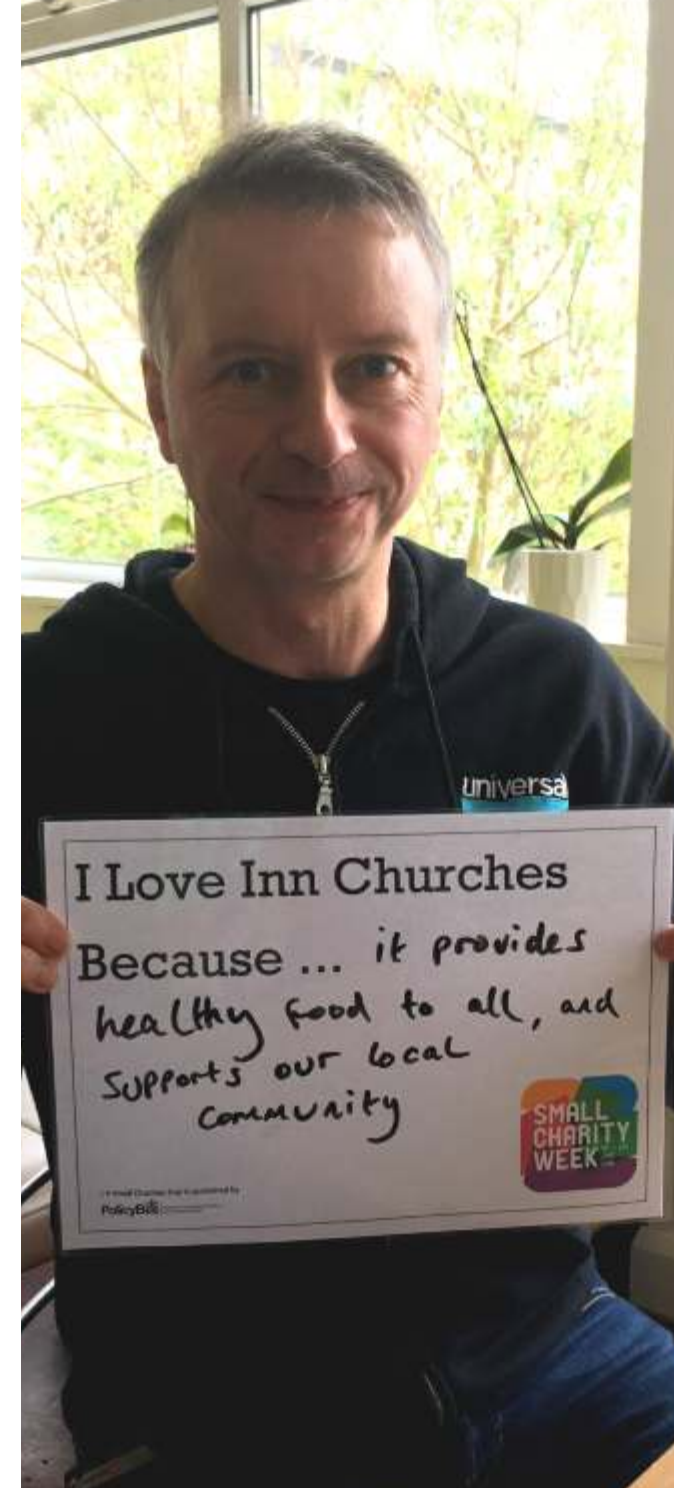 universal
I Love Inn Churches
Because ... it provides
healthy food to all, and
supports our local
community
SMALL
CHARITY
WEEK
PolicyBee